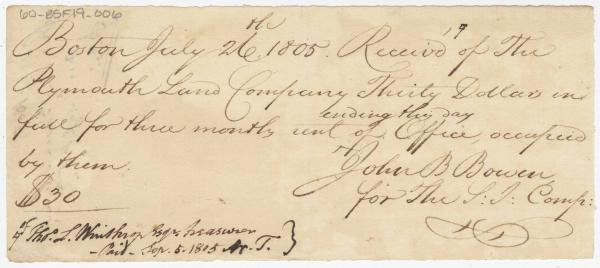 60-BSF19-006
Boston July 26th 1805. Receiv'd of The
Plymouth Land Company Thirty Dollars in
full for three months rent of Office, occupied
ending this day
by them.
John B Bowen
$30
for The S: I: Comp:
Thos. L. Winthrop Esqr. treasurer
Paid - Sep. 5. 1805